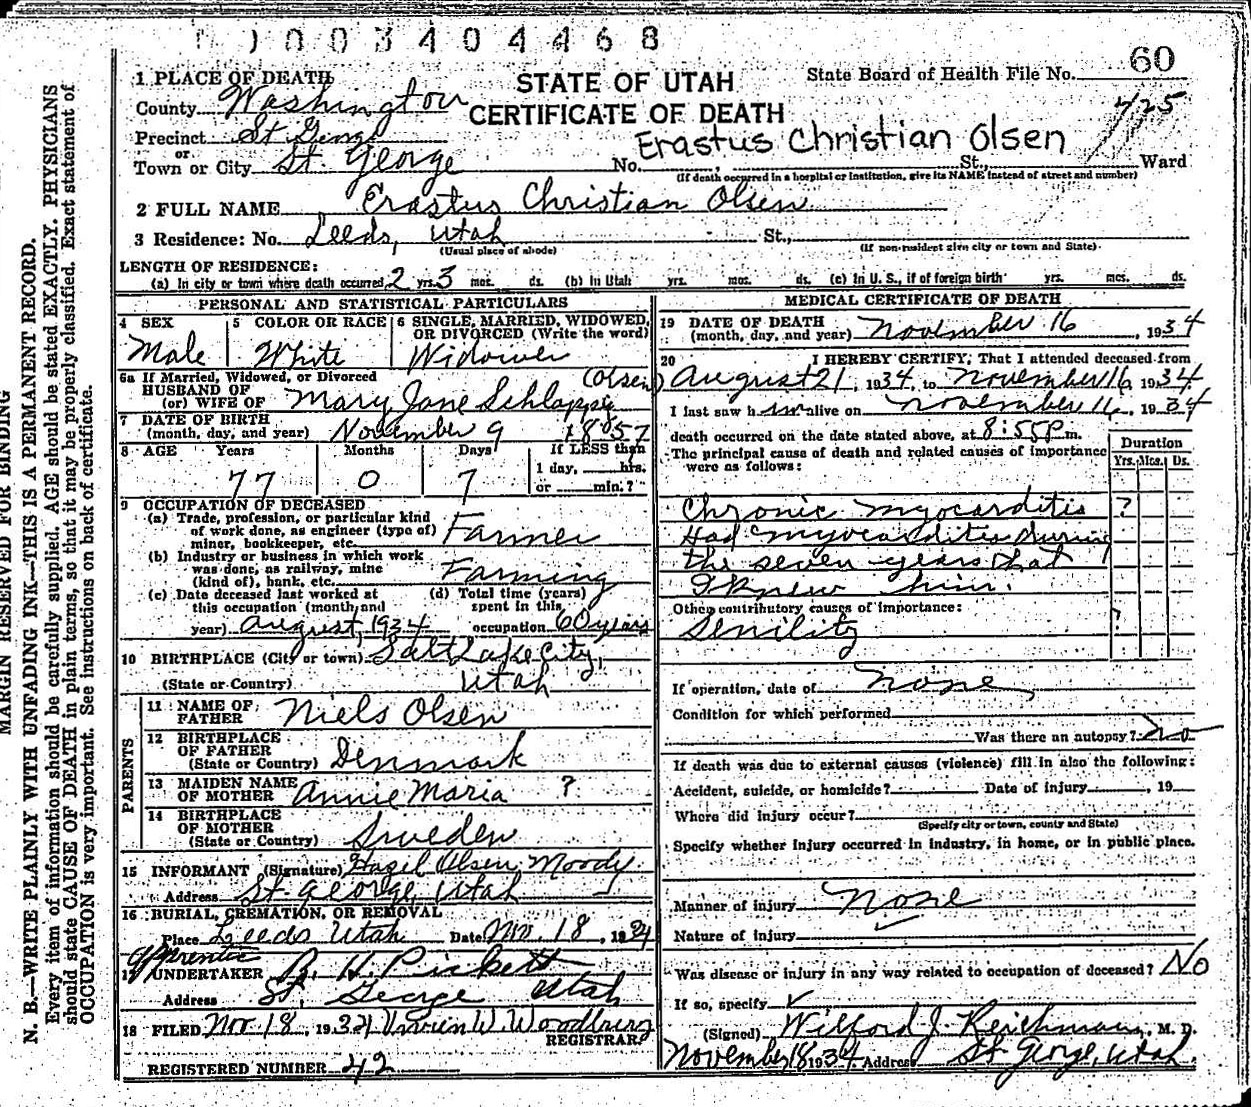 1 0 0 3 4 0 4 4 6 8
60
1 PLACE OF DEATH
STATE OF UTAH
State Board of Health File No.
County Washington
CERTIFICATE OF DEATH
425
Precinct St George
or
Erastus Christian Olsen
Town or City St. George No. St., Ward
(If death occurred in a hospital or institution, give its NAME instead of street and number)
2 FULL NAME Erastus Christian Olsen
3 Residence: No. Leeds, Utah St.,
(Usual place of abode) (If non-resident give city or town and State)
LENGTH OF RESIDENCE:
(a) In city or town where death occurred 2 yrs. 3 mos. ds. (b) In Utah yrs. mos. ds. (c) In U. S., if of foreign birth yrs. mos. ds.
PERSONAL AND STATISTICAL PARTICULARS
4 SEX 5 COLOR OR RACE 6 SINGLE, MARRIED, WIDOWED, OR DIVORCED (Write the word)
Male White Widower
6a If Married, Widowed, or Divorced
HUSBAND OF
(or) WIFE OF Mary Jane Schlappy (Olsen)
7 DATE OF BIRTH
(month, day, and year) November 9 1857
8 AGE Years Months Days If LESS than
1 day, hrs.
or min.?
77 0 7
9 OCCUPATION OF DECEASED
(a) Trade, profession, or particular kind
of work done, as engineer (type of)
miner, bookkeeper, etc. Farmer
(b) Industry or business in which work
was done, as railway, mine
(kind of), bank, etc. Farming
(c) Date deceased last worked at
this occupation (month and
year) August, 1934
(d) Total time (years)
spent in this
occupation 60 years
10 BIRTHPLACE (City or town) Salt Lake City,
(State or Country) Utah
PARENTS
11 NAME OF
FATHER Niels Olsen
12 BIRTHPLACE
OF FATHER
(State or Country) Denmark
13 MAIDEN NAME
OF MOTHER Annie Maria ?
14 BIRTHPLACE
OF MOTHER
(State or Country) Sweden
15 INFORMANT (Signature) Hazel Olsen Moody
Address St. George, Utah
16 BURIAL, CREMATION, OR REMOVAL
Place Leeds Utah Date Nov. 18, 1934
Apprentice
17 UNDERTAKER R. H. Pickett
Address St. George Utah
18 FILED Nov 18, 1934 Vivien W. Woodbury
REGISTRAR
REGISTERED NUMBER 42
MEDICAL CERTIFICATE OF DEATH
19 DATE OF DEATH
(month, day, and year) November 16, 1934
20 I HEREBY CERTIFY, That I attended deceased from
August 21, 1934, to November 16, 1934
I last saw him alive on November 16, 1934
death occurred on the date stated above, at 8:55 P m.
The principal cause of death and related causes of importance
were as follows:
Duration
Yrs. Mos. Ds.
Chronic myocarditis ?
Had myocarditis during
the seven years that
I knew him.
Other contributory causes of importance:
Senility ?
If operation, date of none
Condition for which performed
Was there an autopsy? No
If death was due to external causes (violence) fill in also the following:
Accident, suicide, or homicide? Date of injury , 19
Where did injury occur?
(Specify city or town, county and State)
Specify whether injury occurred in industry, in home, or in public place.
Manner of injury none
Nature of injury
Was disease or injury in any way related to occupation of deceased? No
If so, specify
(Signed) Wilford J. Reichmann, M. D.
November 18 1934 Address St George, Utah.
MARGIN RESERVED FOR BINDING
N. B.—WRITE PLAINLY WITH UNFADING INK—THIS IS A PERMANENT RECORD.
Every item of information should be carefully supplied. AGE should be stated EXACTLY. PHYSICIANS
should state CAUSE OF DEATH in plain terms, so that it may be properly classified. Exact statement of
OCCUPATION is very important. See instructions on back of certificate.